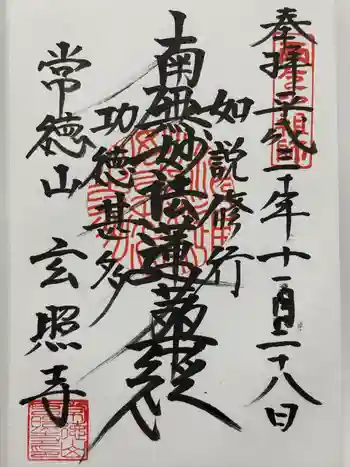 奉拝 平成三十年十一月二十八日
如説修行
南無妙法蓮華経
功徳甚多
常徳山 玄照寺